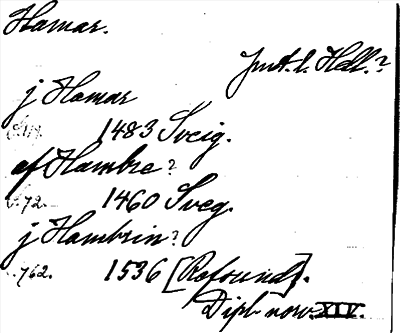 Hamar.
Jmt. l. Hell.?
j Hamar
1483 Sveig.
af Hambre?
72. 1460 Sveg.
j Hambrin?
762. 1536 [Refsund].
Dipl. norv. XIV.